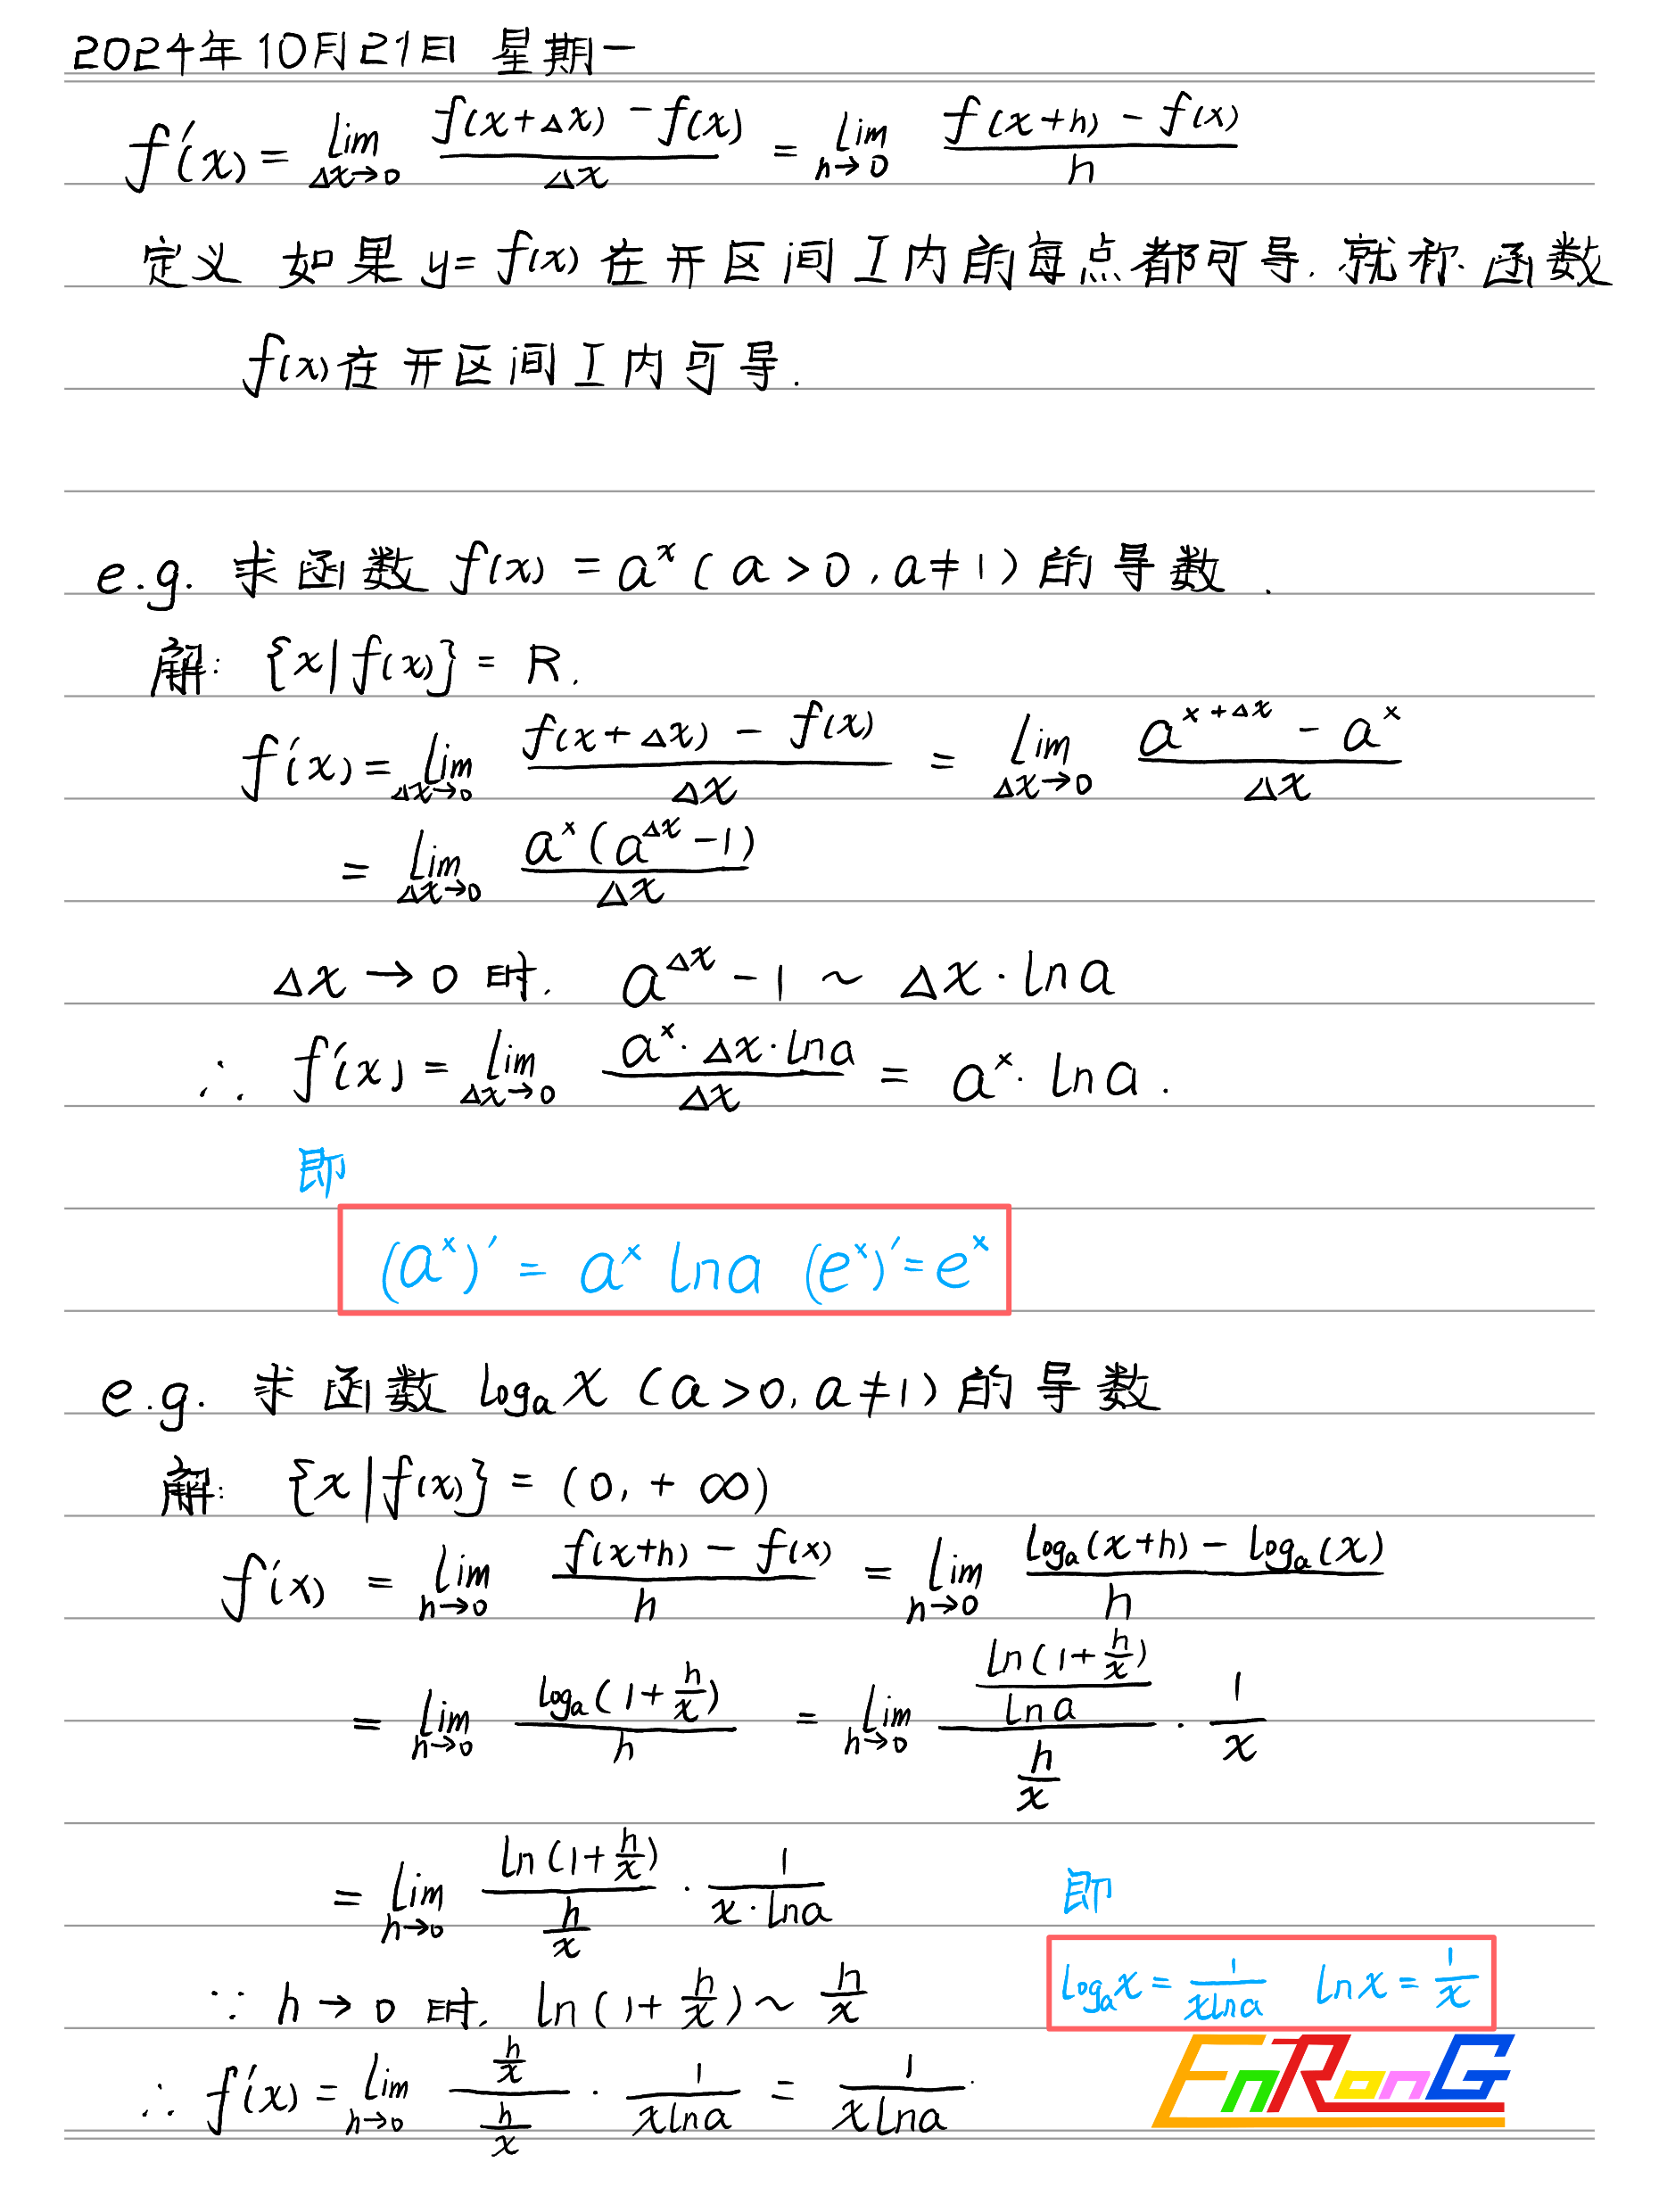 2024年10月21日 星期一
f′(x) = lim_{Δx→0} (f(x+Δx) − f(x))/Δx = lim_{h→0} (f(x+h) − f(x))/h
定义 如果 y = f(x) 在开区间 I 内的每点都可导, 就称函数
f(x) 在开区间 I 内可导.
e.g. 求函数 f(x) = a^x (a > 0, a ≠ 1) 的导数.
解: {x | f(x)} = R.
f′(x) = lim_{Δx→0} (f(x+Δx) − f(x))/Δx = lim_{Δx→0} (a^{x+Δx} − a^x)/Δx
= lim_{Δx→0} a^x(a^{Δx} − 1)/Δx
Δx → 0 时, a^{Δx} − 1 ~ Δx · ln a
∴ f′(x) = lim_{Δx→0} (a^x · Δx · ln a)/Δx = a^x · ln a.
即
(a^x)′ = a^x ln a (e^x)′ = e^x
e.g. 求函数 log_a x (a > 0, a ≠ 1) 的导数
解: {x | f(x)} = (0, +∞)
f′(x) = lim_{h→0} (f(x+h) − f(x))/h = lim_{h→0} (log_a(x+h) − log_a(x))/h
= lim_{h→0} log_a(1 + h/x)/h = lim_{h→0} (ln(1 + h/x)/ln a)/(h/x) · 1/x
= lim_{h→0} ln(1 + h/x)/(h/x) · 1/(x · ln a)
∵ h → 0 时, ln(1 + h/x) ~ h/x
∴ f′(x) = lim_{h→0} (h/x)/(h/x) · 1/(x ln a) = 1/(x ln a).
即
log_a x = 1/(x ln a) ln x = 1/x
EnRonG